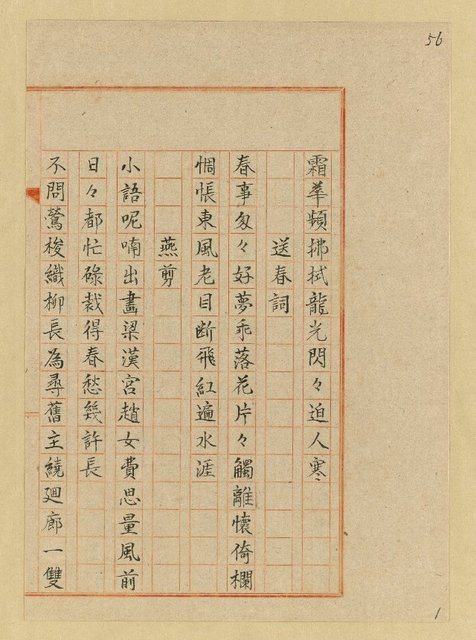 56
霜華頻拂拭龍光閃々迫人寒
送春詞
春事匆々好夢乖落花片々觸離懷倚欄
惆悵東風老目断飛紅遍水涯
燕剪
小語呢喃出畫梁漢宮趙女費思量風前
日々都忙碌裁得春愁幾許長
不問鶯梭織柳長為尋舊主繞廻廊一雙
1